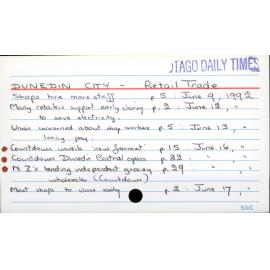 OTAGO DAILY TIMES
DUNEDIN CITY - Retail Trade
Shops hire more staff p.5 : June 9, 1992
Many retailers support early closing p.2 : June 12, "
to save electricity.
Union concerned about shop workers p.5 : June 13, "
losing pay.
Countdown unveils 'new format' p.15 : June 16, "
Countdown Dunedin Central opens p.22 : " "
N Z's leading independent grocery p.29 " "
wholesaler (Countdown)
Most shops to close early p.2 : June 17, "
53/C